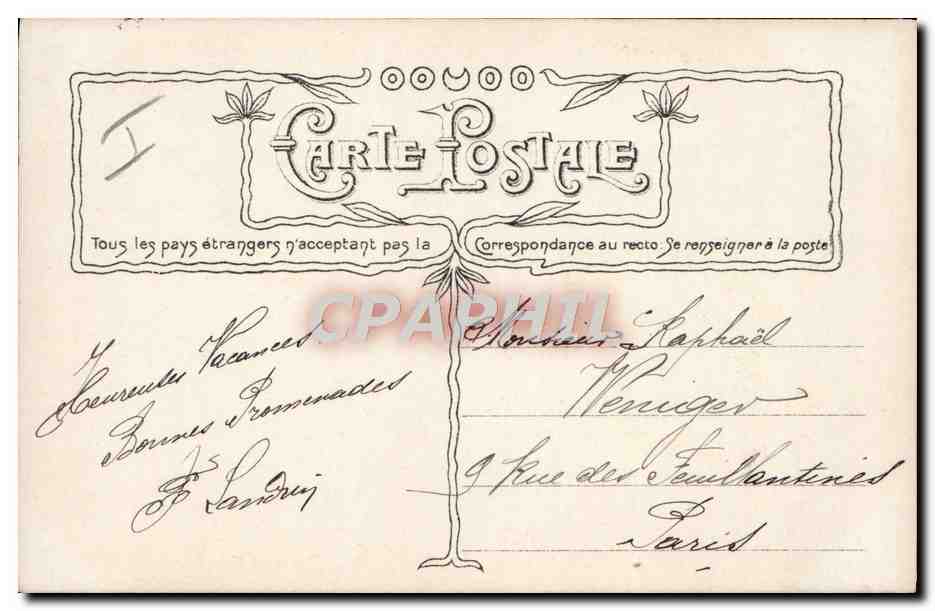 I
CARTE POSTALE
Tous les pays étrangers n'acceptant pas la Correspondance au recto : Se renseigner à la poste
CPAPHIL
Heureuses Vacances
Bonnes Promenades
Landrin
Monsieur Raphaël
Weniger
9 Rue des Feuillantines
Paris